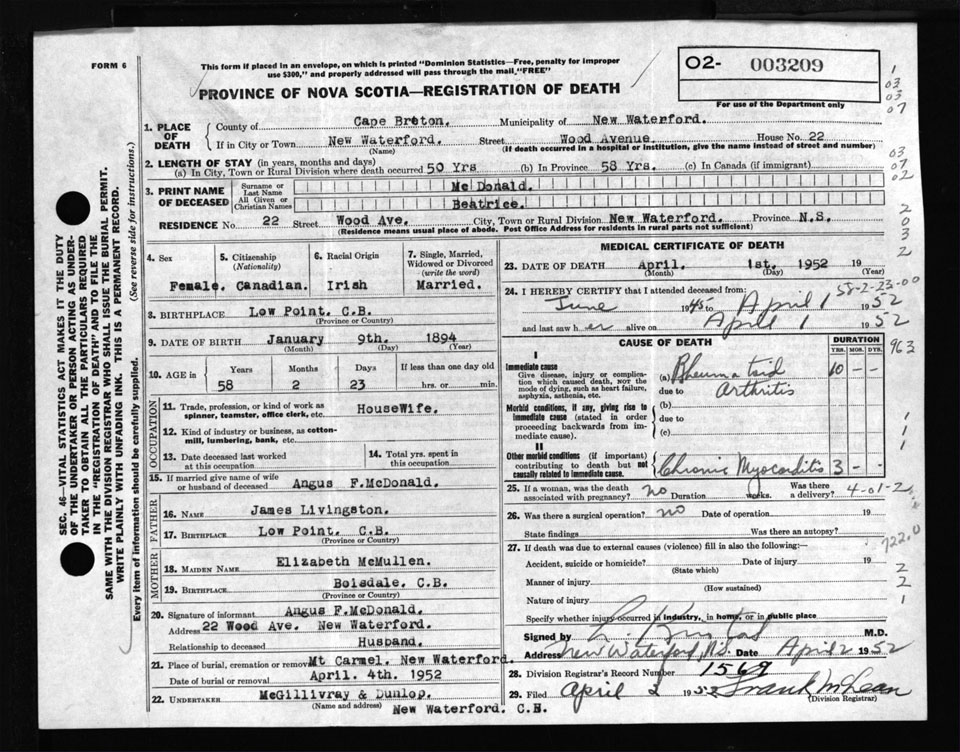 FORM 6
This form if placed in an envelope, on which is printed "Dominion Statistics—Free, penalty for improper
use $300," and properly addressed will pass through the mail, "FREE"
PROVINCE OF NOVA SCOTIA—REGISTRATION OF DEATH
O2- 003209
For use of the Department only
1
03
03
07
03
07
02
2
0
3
2
1. PLACE OF DEATH
County of Cape Breton. Municipality of New Waterford.
If in City or Town New Waterford. Street Wood Avenue. House No. 22
(Name) (If death occurred in a hospital or institution, give the name instead of street and number)
2. LENGTH OF STAY (in years, months and days)
(a) In City, Town or Rural Division where death occurred 50 Yrs (b) In Province 58 Yrs. (c) In Canada (if immigrant)
3. PRINT NAME OF DECEASED
Surname or Last Name McDonald.
All Given or Christian Names Beatrice.
RESIDENCE No. 22 Street Wood Ave. City, Town or Rural Division New Waterford. Province N.S.
(Residence means usual place of abode. Post Office Address for residents in rural parts not sufficient)
4. Sex
Female.
5. Citizenship
(Nationality)
Canadian.
6. Racial Origin
Irish
7. Single, Married, Widowed or Divorced
(write the word)
Married.
8. BIRTHPLACE Low Point, C.B.
(Province or Country)
9. DATE OF BIRTH January 9th. 1894
(Month) (Day) (Year)
10. AGE in Years Months Days If less than one day old
58 2 23 hrs. or min.
OCCUPATION
11. Trade, profession, or kind of work as
spinner, teamster, office clerk, etc. HouseWife.
12. Kind of industry or business, as cotton-
mill, lumbering, bank, etc.
13. Date deceased last worked
at this occupation
14. Total yrs. spent in
this occupation
15. If married give name of wife
or husband of deceased Angus F.McDonald.
FATHER
16. NAME James Livingston.
17. BIRTHPLACE Low Point, C.B.
(Province or Country)
MOTHER
18. MAIDEN NAME Elizabeth McMullen.
19. BIRTHPLACE Boisdale, C.B.
(Province or Country)
20. Signature of informant Angus F.McDonald.
Address 22 Wood Ave. New Waterford.
Relationship to deceased Husband.
21. Place of burial, cremation or removal Mt Carmel. New Waterford.
Date of burial or removal April. 4th. 1952
22. UNDERTAKER McGillivray & Dunlop.
(Name and address) New Waterford. C.B.
MEDICAL CERTIFICATE OF DEATH
23. DATE OF DEATH April. 1st. 1952 19
(Month) (Day) (Year)
58-2-23-00
24. I HEREBY CERTIFY that I attended deceased from:
June 1945 to April 1 1952
and last saw her alive on April 1 1952
CAUSE OF DEATH DURATION
YRS. MOS. DYS.
963
I
Immediate cause
Give disease, injury or complica-
tion which caused death, not the
mode of dying, such as heart failure,
asphyxia, asthenia, etc.
(a) Rheumatoid 10 — —
due to Arthritis
Morbid conditions, if any, giving rise to
immediate cause (stated in order
proceeding backwards from im-
mediate cause).
(b)
due to
(c)
1
1
II
Other morbid conditions (if important)
contributing to death but not
causally related to immediate cause.
Chronic Myocarditis 3 — —
25. If a woman, was the death
associated with pregnancy? no Duration weeks. Was there
a delivery?
4-01-2
26. Was there a surgical operation? no Date of operation 19
State findings Was there an autopsy?
722.0
27. If death was due to external causes (violence) fill in also the following:—
Accident, suicide or homicide? Date of injury 19
(State which)
Manner of injury
(How sustained)
Nature of injury
2
2
1
Specify whether injury occurred in industry, in home, or in public place
Signed by M.D.
Address New Waterford, N.S. Date April 2 1952
28. Division Registrar's Record Number 1569
29. Filed April 2 1952 Frank McLean
(Division Registrar)
SEC. 46—VITAL STATISTICS ACT MAKES IT THE DUTY
OF THE UNDERTAKER OR PERSON ACTING AS UNDER-
TAKER TO OBTAIN ALL THE PARTICULARS REQUIRED
IN THE "REGISTRATION OF DEATH" AND TO FILE THE
SAME WITH THE DIVISION REGISTRAR WHO SHALL ISSUE THE BURIAL PERMIT.
WRITE PLAINLY WITH UNFADING INK. THIS IS A PERMANENT RECORD.
Every item of information should be carefully supplied. (See reverse side for instructions.)